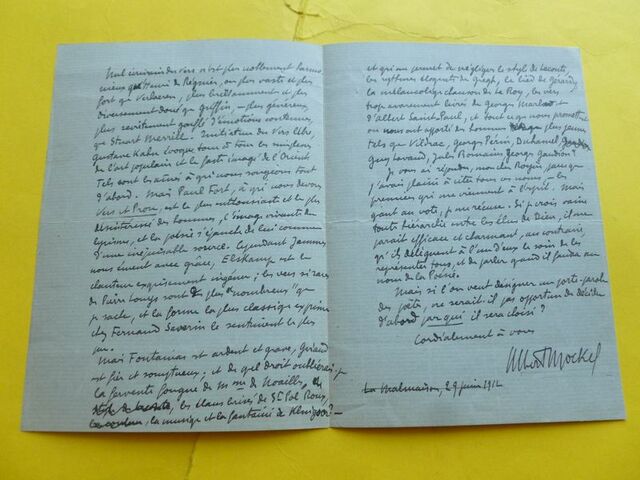 Nul écrivain des vers n'est plus noblement harmo-
nieux qu'Henri de Régnier, ou plus vaste et plus
fort que Verhaeren, plus
diversement doué que Griffin – plus généreux,
plus gonflé d'émotions contenues,
que Stuart Merrill. Initiateur du Vers libre,
Gustave Kahn évoque tour à tour
de l'art populaire et le faste imagé de l'Orient
Tels sont les aînés à qui nous songeons tout
d'abord. Mais Paul Fort, à qui nous devons
Vers et Prose, est le plus enthousiaste et le plus
désintéressé des hommes, l'image vivante du
lyrisme, et la poésie s'épanche de lui comme
d'une inépuisable source. Cependant Jammes
nous émeut avec grâce, Elskamp est le
chanteur exquisement ingénu; les vers si rares
de Pierre Louÿs sont plus nombreux que
je sache, et la forme la plus classique exprime
chez Fernand Severin le sentiment le plus
pur.
Mais Fontainas est ardent et grave,
est fier et somptueux; et de quel droit oublierais-je
la fervente fougue de Mme de Noailles,
de St Pol Roux,
la musique et la fantaisie de Klingsor? –
et qui me permet de négliger le style de
les rythmes éloquents de Ghégh, le lied de Gérardy,
la mélancolique chanson de Le Roy, les vers
trop avarement livrés de Georges Marlow et
d'Albert Saint-Paul, et tout ce que nous promettent
ou nous ont apporté des hommes plus jeunes
tels que Vildrac, Georges Périn, Duhamel
Guy Lavaud, Jules Romains, Georges Gaudion?
Je vous ai répondu, mon cher Royère, parce que
j'avais plaisir à citer tous ces noms – les
premiers qui me viennent à l'esprit. Mais
quant au vote, je me récuse. Si je crois vaine
toute hiérarchie entre les élus de Dieu, il me
paraît efficace et charmant, au contraire,
qu'ils délèguent à l'un d'eux le soin de les
représenter tous, et de parler quand il faudra au
nom de la Poésie.
Mais si l'on veut désigner un porte-parole
des poëtes, ne serait-il pas opportun de décider
d'abord par qui il sera choisi?
Cordialement à vous
Albert Mockel
La Malmaison, 29 juin 1912